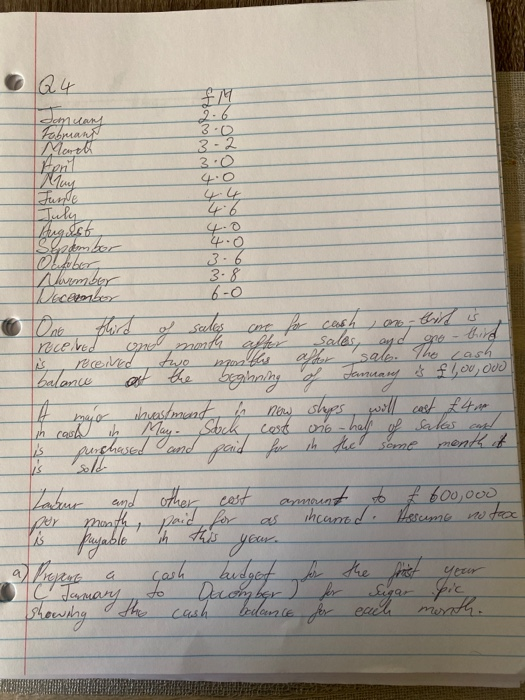 Q4
£M
January 2.6
Febmany 3.0
March 3-2
April 3.0
May 4.0
June 4.4
July 4.6
August 4.0
September 4.0
October 3.6
November 3.8
December 6-0
One third of sales are for cash, one-third is
received one month after sales, and one-third
is received two months after sale. The cash
balance at the beginning of January is £1,00,000
A major investment in new shops will cost £4m
in cash in May. Stock costs one-half of sales and
is purchased and paid for in the same month it
is sold
Labour and other cost amount to £600,000
per month, paid for as incurred. Assume no tax
is payable in this year.
a) Prepare a cash budget for the first year
(January to December) for Sugar pic
showing the cash balance for each month.